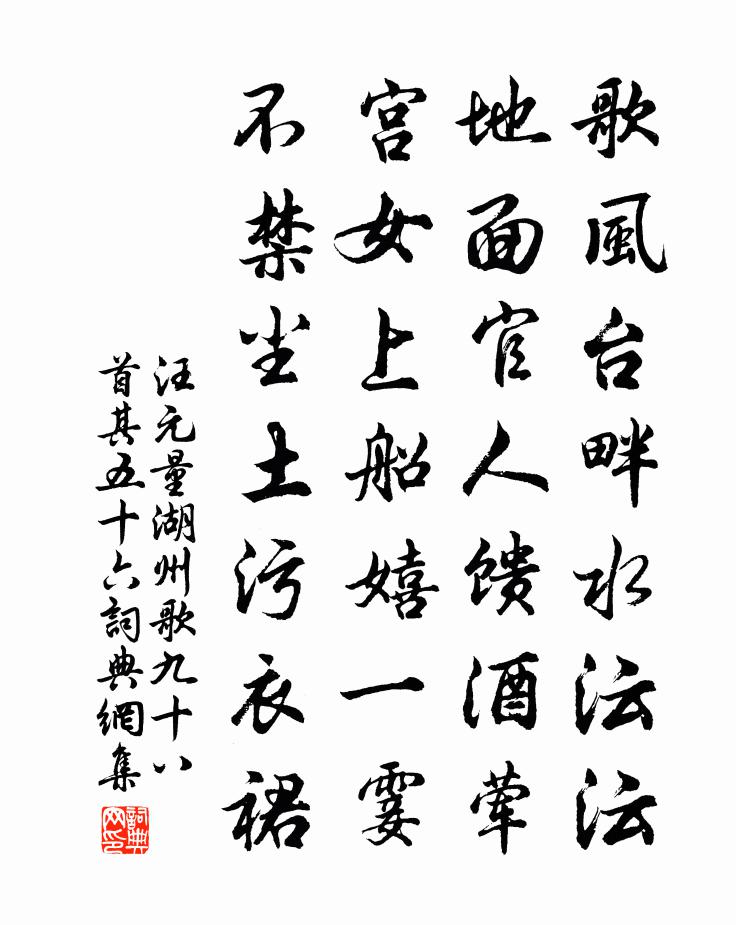 歌風台畔水沄沄
地面官人馈酒荤
宫女上船嬉一霎
不禁尘土污衣裙
汪元量湖州歌九十八
首其五十六詞典網集
詞典网印